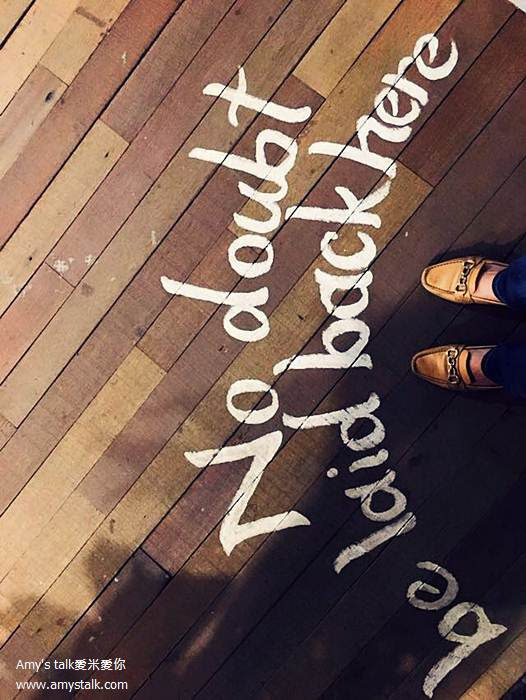 No doubt
be laid back here
Amy's talk愛米愛你
www.amystalk.com